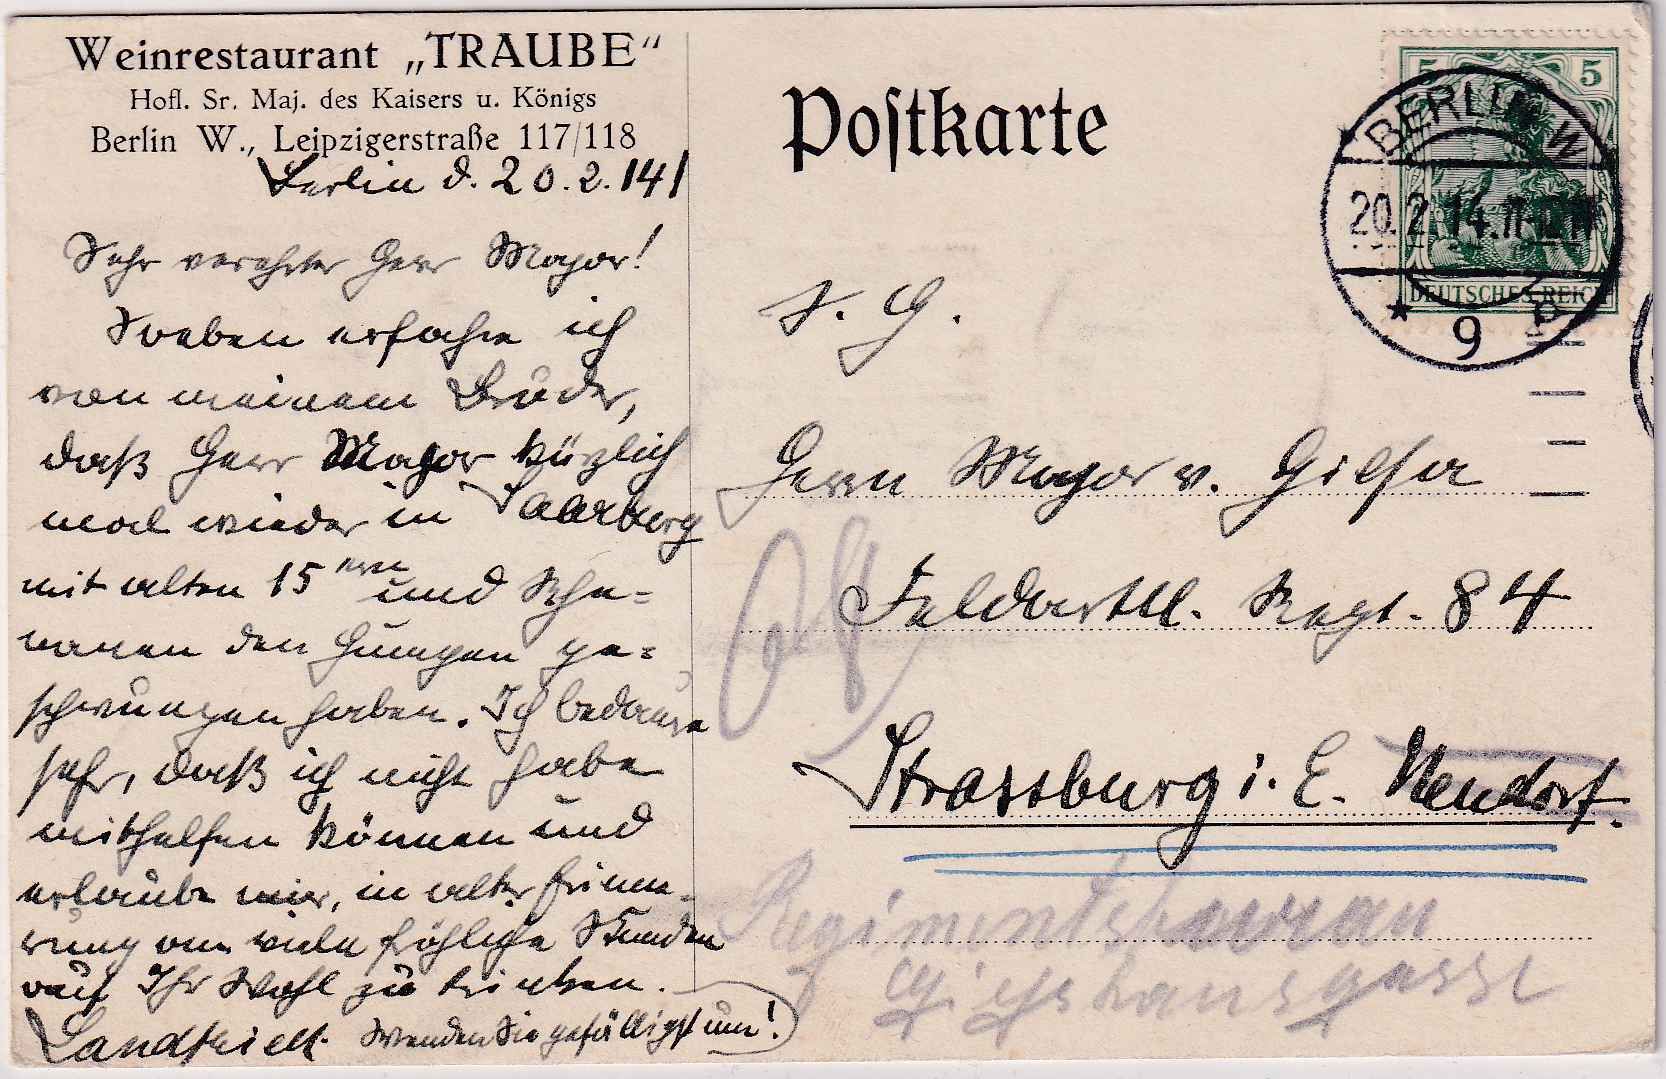 Weinrestaurant „TRAUBE“
Hofl. Sr. Maj. des Kaisers u. Königs
Berlin W., Leipzigerstraße 117/118
Berlin d. 20.2.14
Sehr verehrter Herr Major!
Soeben erfahre ich
von meinem Bruder,
daß Herr Major kürzlich
mal wieder in Saarberg
mit alten 15ern und
den Humpen ge-
schwungen haben. Ich bedaure
sehr, daß ich nicht habe
mithelfen können und
erlaube mir, in alter Erinne-
rung an viele fröhliche Stunden
auf Ihr Wohl zu trinken.
Wenden Sie gefälligst um!
Postkarte
5 5
DEUTSCHES REICH
BERLIN W
20.2.14.11-12 N
* 9
S. H.
Herrn Major v. Gilsa
Feldartill. Regt. 84
Strassburg i. E. Neudorf.
Regiments